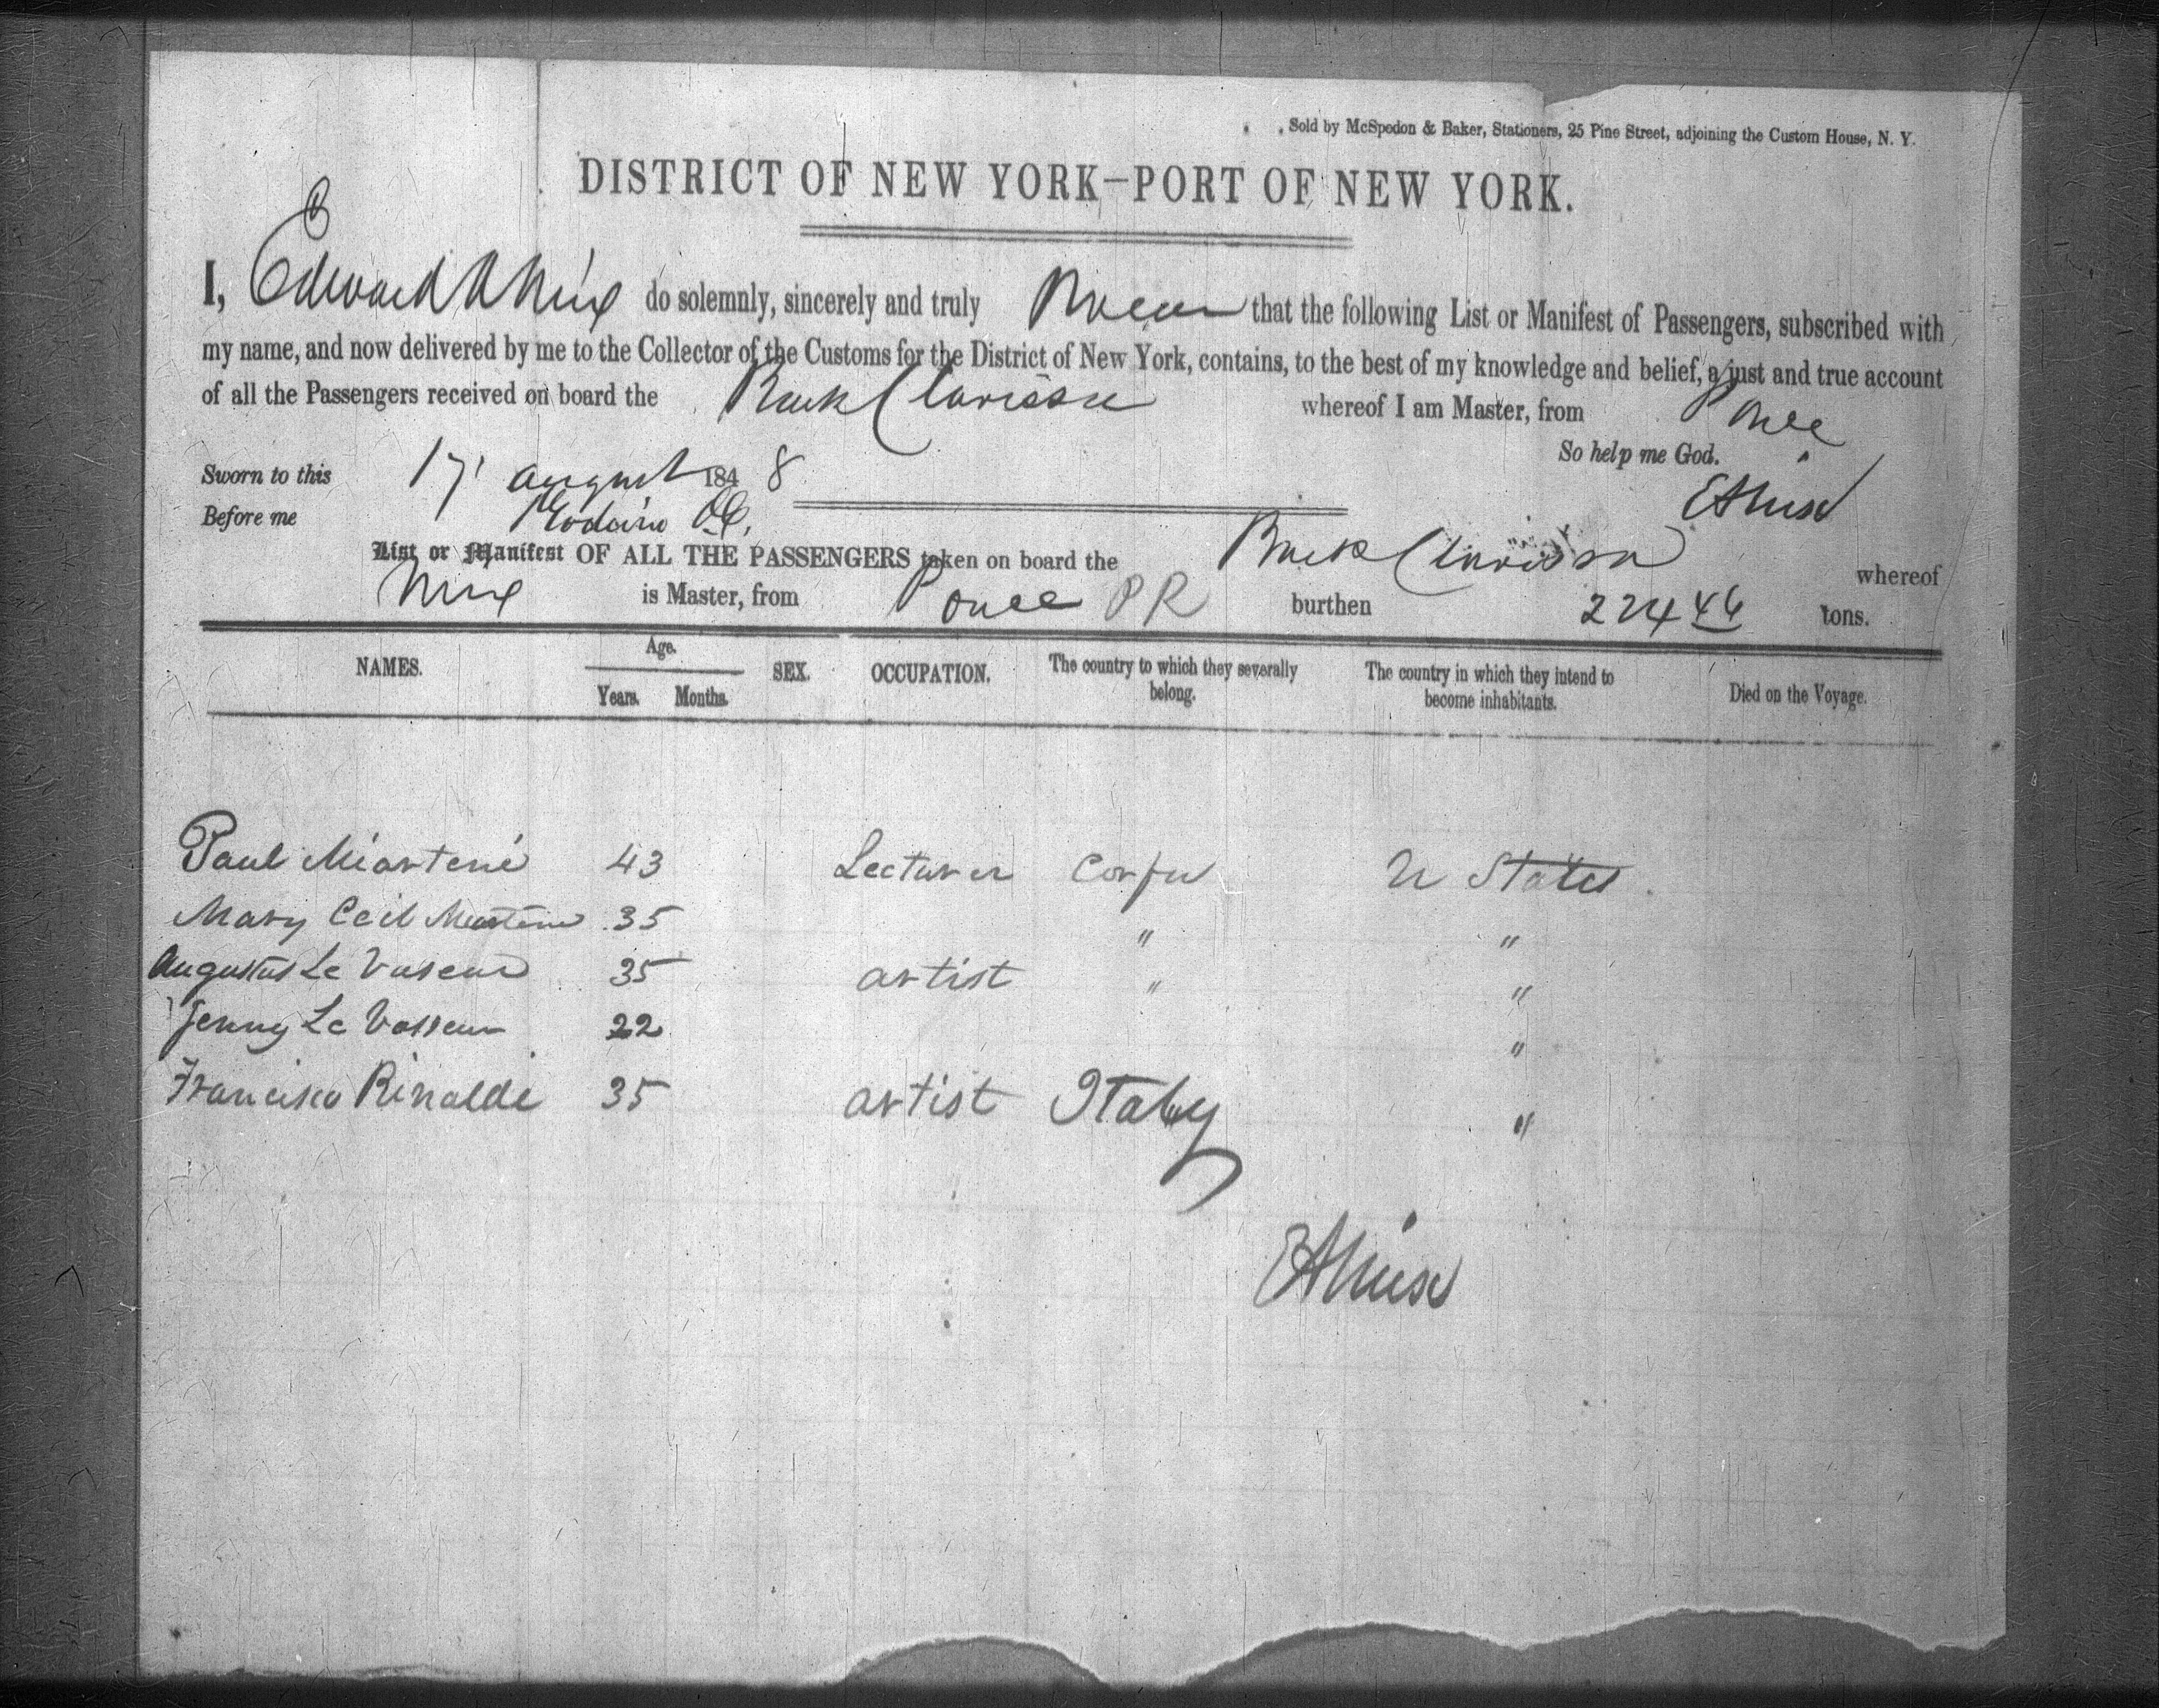 Sold by McSpedon & Baker, Stationers, 25 Pine Street, adjoining the Custom House, N. Y.
DISTRICT OF NEW YORK—PORT OF NEW YORK.
I, Edward A Nix do solemnly, sincerely and truly that the following List or Manifest of Passengers, subscribed with
my name, and now delivered by me to the Collector of the Customs for the District of New York, contains, to the best of my knowledge and belief, a just and true account
of all the Passengers received on board the Bark Clarissa whereof I am Master, from Ponce
So help me God.
Sworn to this 17 august 1848 EANix
Before me
List or Manifest OF ALL THE PASSENGERS taken on board the Bark Clarissa whereof
Nix is Master, from Ponce PR burthen 224 46 tons.
NAMES. Age. Years. Months. SEX. OCCUPATION. The country to which they severally belong. The country in which they intend to become inhabitants. Died on the Voyage.
Paul 43 Lecturer Corfu U States
Mary Cecil 35 " "
Augustus Le Vaseur 35 artist " "
Jenny Le Vasseur 22 "
Francisco Rinaldi 35 artist Italy "
EANix